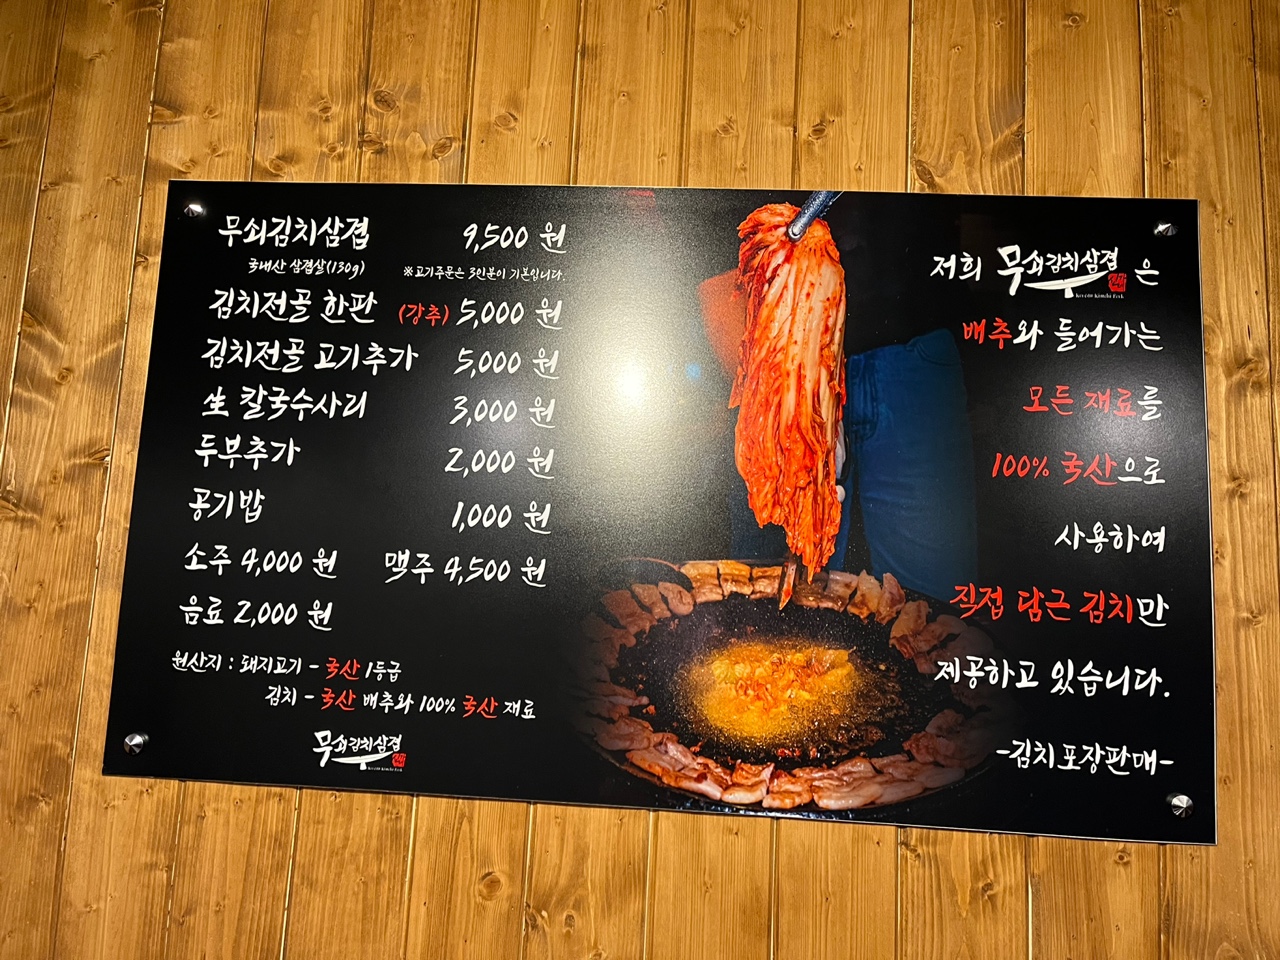 무쇠김치삼겹 9,500 원
국내산 삼겹살(130g) ※고기주문은 3인분이 기본입니다.
김치전골 한판 (강추) 5,000 원
김치전골 고기추가 5,000 원
生 칼국수사리 3,000 원
두부추가 2,000 원
공기밥 1,000 원
소주 4,000 원 맥주 4,500 원
음료 2,000 원
원산지 : 돼지고기 - 국산 1등급
김치 - 국산 배추와 100% 국산 재료
무쇠김치삼겹
저희 무쇠김치삼겹은
배추와 들어가는
모든 재료를
100% 국산으로
사용하여
직접 담근 김치만
제공하고 있습니다.
-김치포장판매-